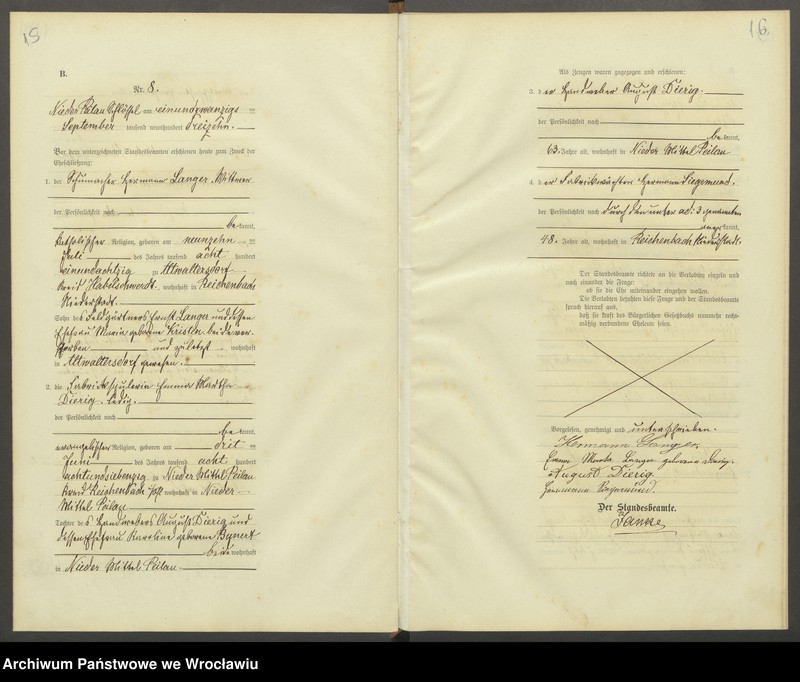 15
B.
Nr. 8.
Nieder Peilau Schlössel am einundzwanzigs
September tausend neunhundert dreizehn.
Vor dem unterzeichneten Standesbeamten erschienen heute zum Zweck der
Eheschließung:
1. der Schuhmacher Hermann Langer, Witwer
der Persönlichkeit nach
be kannt,
katholischer Religion, geboren am neunzehn
Juli des Jahres tausend acht hundert
einundachtzig zu Altwaltersdorf
Kreis Habelschwerdt, wohnhaft in Reichenbach
Niederstadt.
Sohn des Feldgärtners Ernst Langer und dessen
Ehefrau Maria geborene Kristen, beide ver-
storben und zuletzt wohnhaft
in Altwaltersdorf gewesen.
2. die Fabrikspulerin Emma Martha
Dierig, ledig,
der Persönlichkeit nach
be kannt,
evangelischer Religion, geboren am drit
Juni des Jahres tausend acht hundert
achtundsiebenzig zu Nieder Mittel Peilau
Kreis Reichenbach wohnhaft in Nieder
Mittel Peilau
Tochter des Handwebers August Dierig und
dessen Ehefrau Karoline geborene
beide wohnhaft
in Nieder Mittel Peilau
16
Als Zeugen waren zugezogen und erschienen:
3. der Handweber August Dierig.
der Persönlichkeit nach
be kannt,
63 Jahre alt, wohnhaft in Nieder Mittel Peilau
4. der Fabrikwächter Hermann Siegemund.
der Persönlichkeit nach durch den unter ad. 3 genannten
kannt,
48 Jahre alt, wohnhaft in Reichenbach
Der Standesbeamte richtete an die Verlobten einzeln und
nach einander die Frage:
ob sie die Ehe miteinander eingehen wollen.
Die Verlobten bejahten diese Frage und der Standesbeamte
sprach hierauf aus,
daß sie kraft des Bürgerlichen Gesetzbuchs nunmehr recht-
mäßig verbundene Eheleute seien.
Vorgelesen, genehmigt und unterschrieben.
Hermann Langer.
Emma Martha Langer geborene Dierig.
August Dierig
Hermann Siegemund.
Der Standesbeamte.
Archiwum Państwowe we Wrocławiu